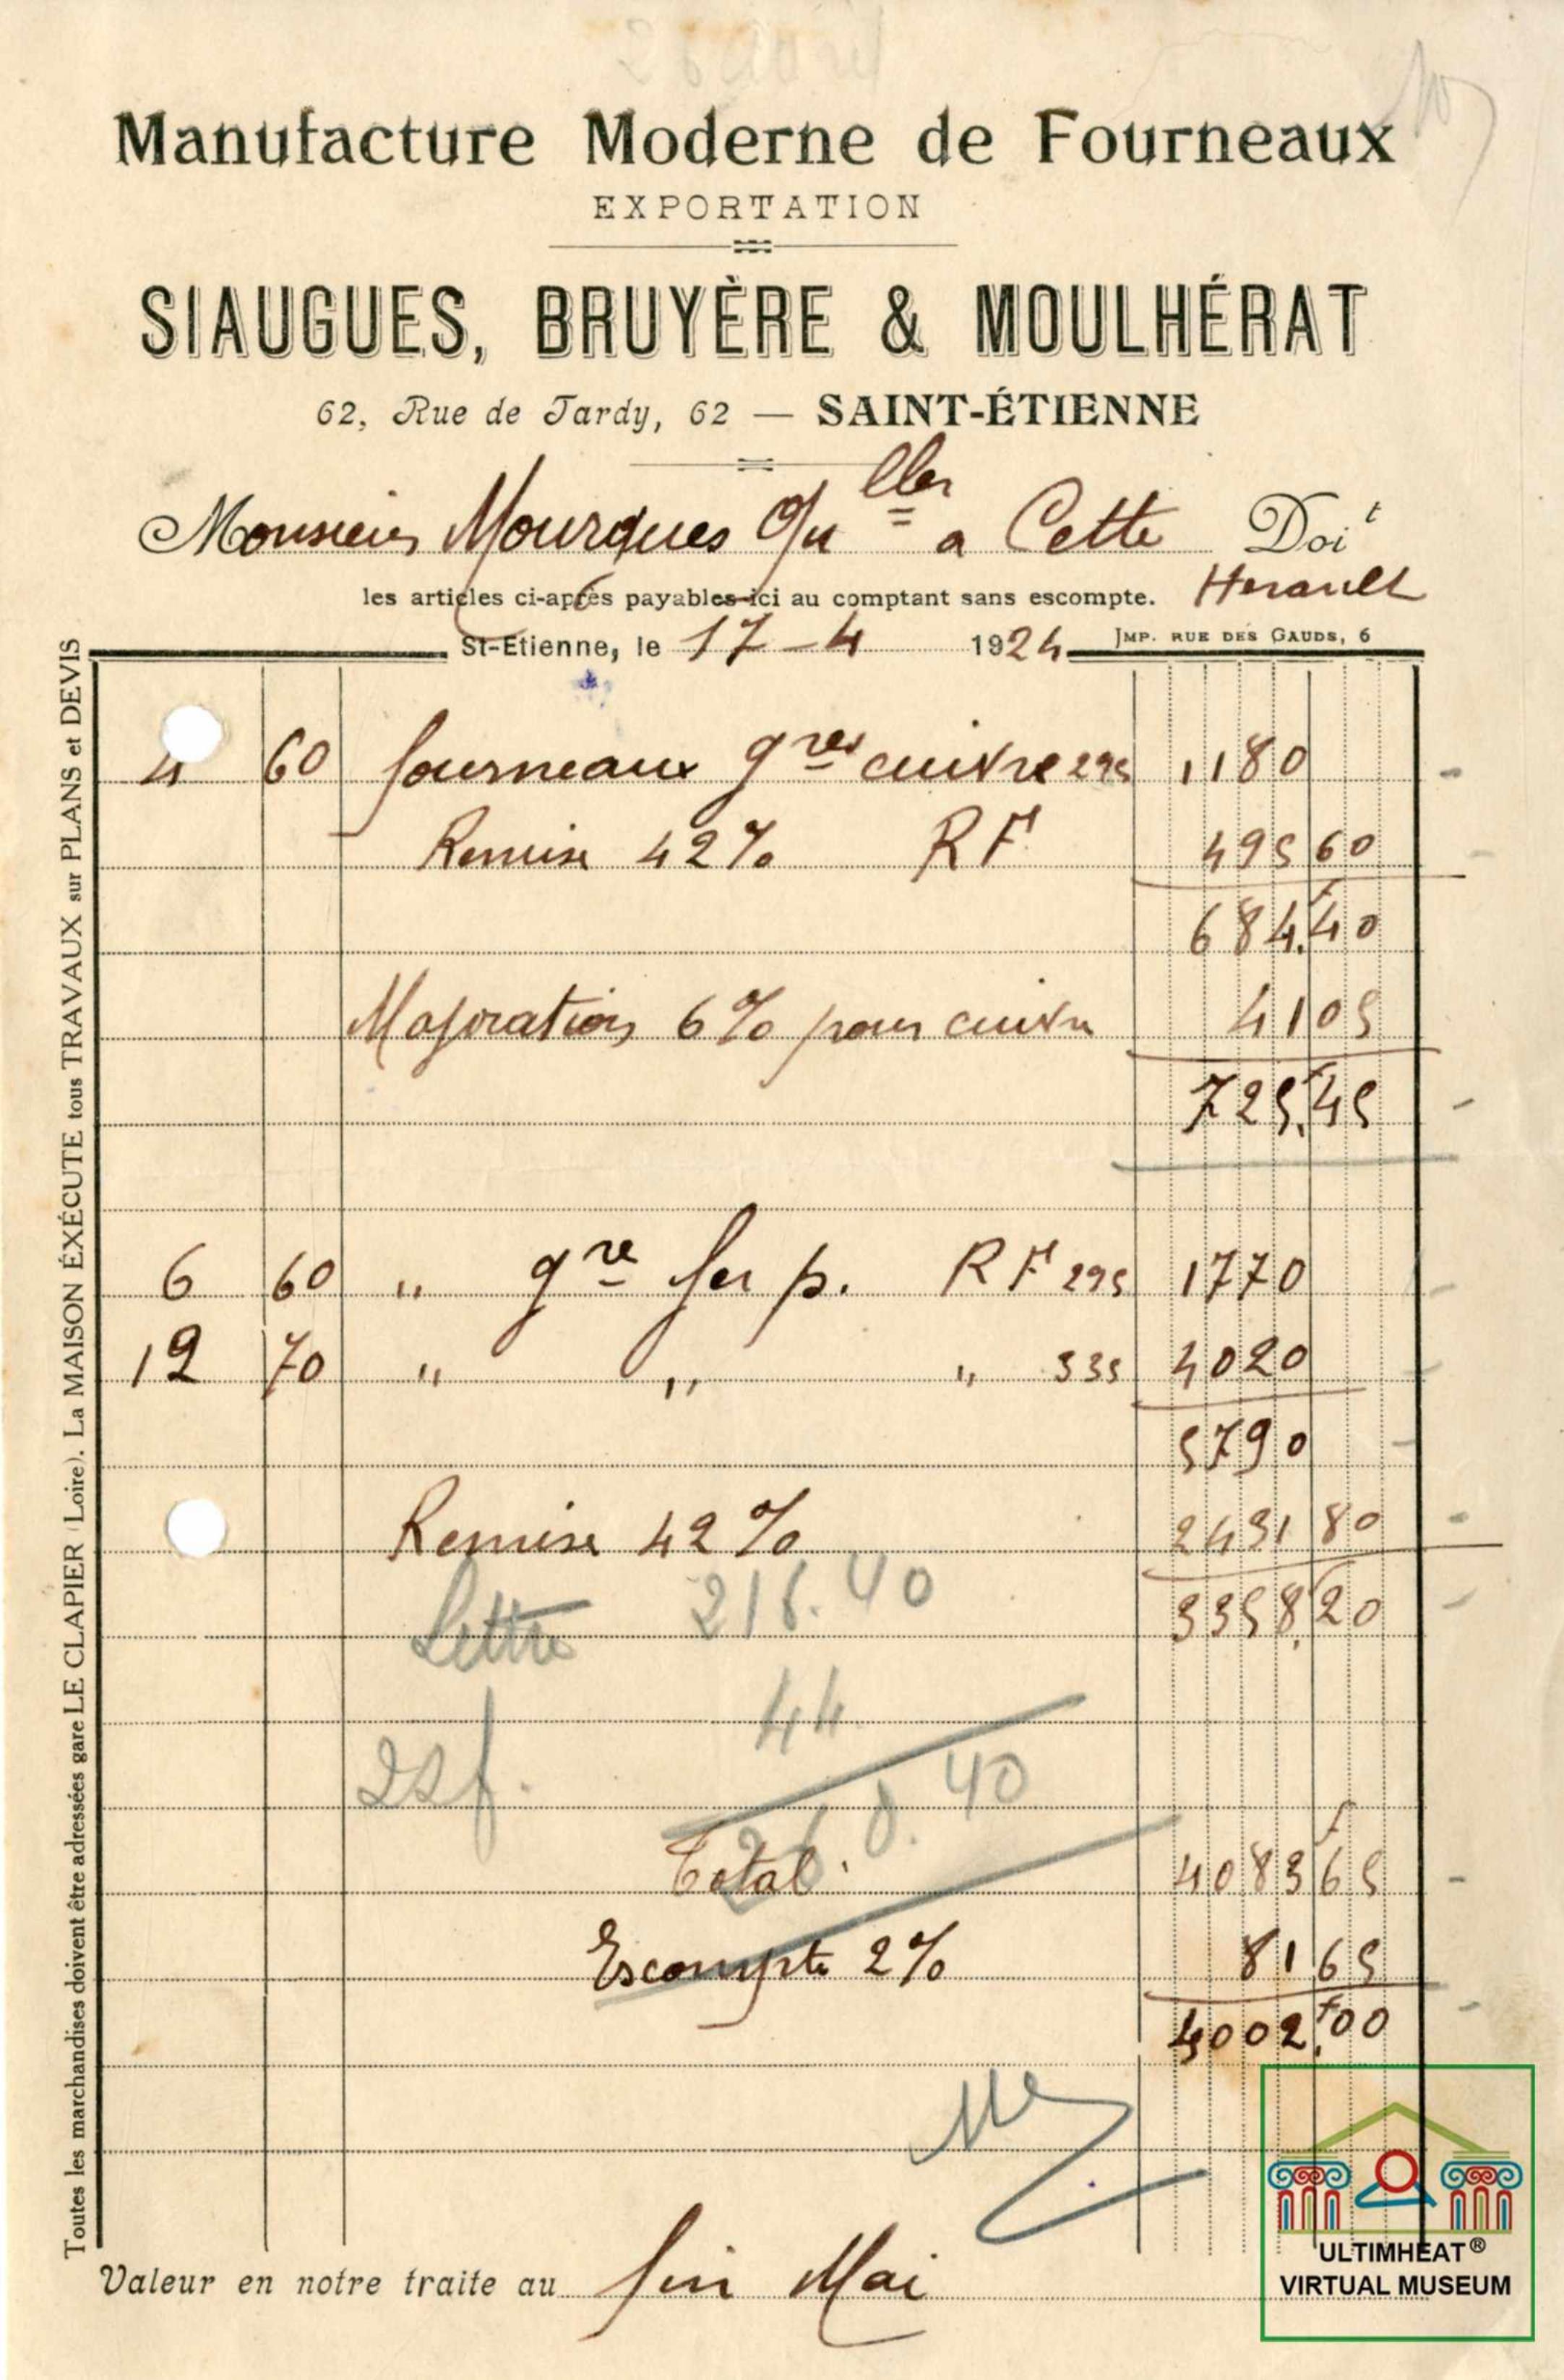 Manufacture Moderne de Fourneaux
EXPORTATION
SIAUGUES, BRUYÈRE & MOULHÉRAT
62, Rue de Tardy, 62 — SAINT-ÉTIENNE
Monsieur Mourgues a Cette Doit
les articles ci-après payables ici au comptant sans escompte. Herault
St-Etienne, le 17-4 1924 IMP. RUE DES GAUDS, 6
4 60 fourneaux gres cuivre 295 1180
Remise 42% RF 495 60
684.40
Majoration 6% pour cuivre 41 05
725.45
6 60 " gre fer p. RF 295 1770
12 70 " " " 335 4020
5790
Remise 42% 2431 80
Lettre 216.40 3358.20
44
40
Total 4083 65
Escompte 2% 81 65
4002.00
Valeur en notre traite au fin Mai
Toutes les marchandises doivent être adressées gare LE CLAPIER (Loire). La MAISON ÉXÉCUTE tous TRAVAUX sur PLANS et DEVIS
ULTIMHEAT®
VIRTUAL MUSEUM